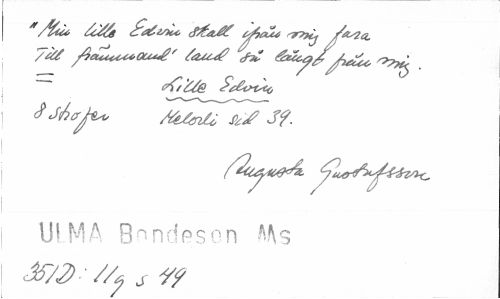 "Min lille Edvin skall ifrån mig fara
Till främmand' land så långt från mig.
=
Lille Edvin
8 strofer Melodi sid 39.
Augusta Gustafsson
ULMA Bondeson Ms
351D: 11q s 49